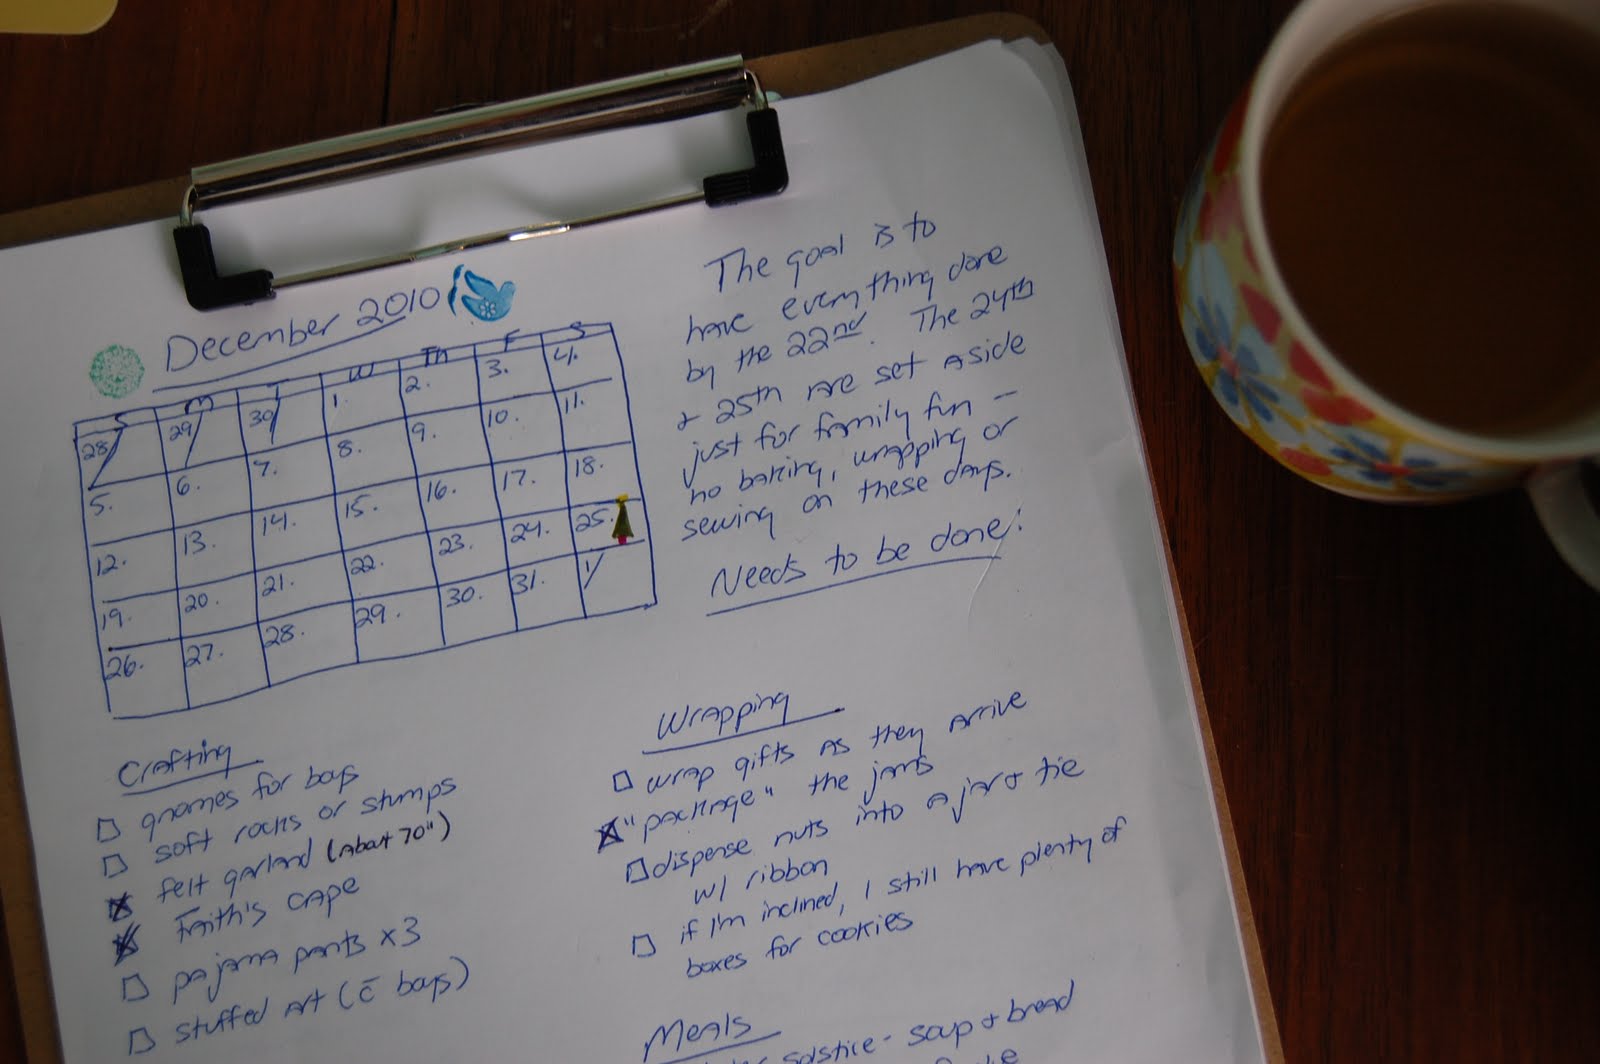 December 2010
S M T W Th F S
28 29 30 1. 2. 3. 4.
5. 6. 7. 8. 9. 10. 11.
12. 13. 14. 15. 16. 17. 18.
19. 20. 21. 22. 23. 24. 25.
26. 27. 28. 29. 30. 31. 1
The goal is to
have everything done
by the 22nd. The 24th
+ 25th are set aside
just for family fun -
no baking, wrapping or
sewing on these days.
Needs to be done:
Crafting
gnomes for boys
soft rocks or stumps
felt garland (about 70")
Faith's cape
pajama pants x3
stuffed art (c̄ boys)
Wrapping
wrap gifts as they arrive
"package" the jams
dispense nuts into a jar + tie
w/ ribbon
if I'm inclined, I still have plenty of
boxes for cookies
Meals
solstice - soup + bread